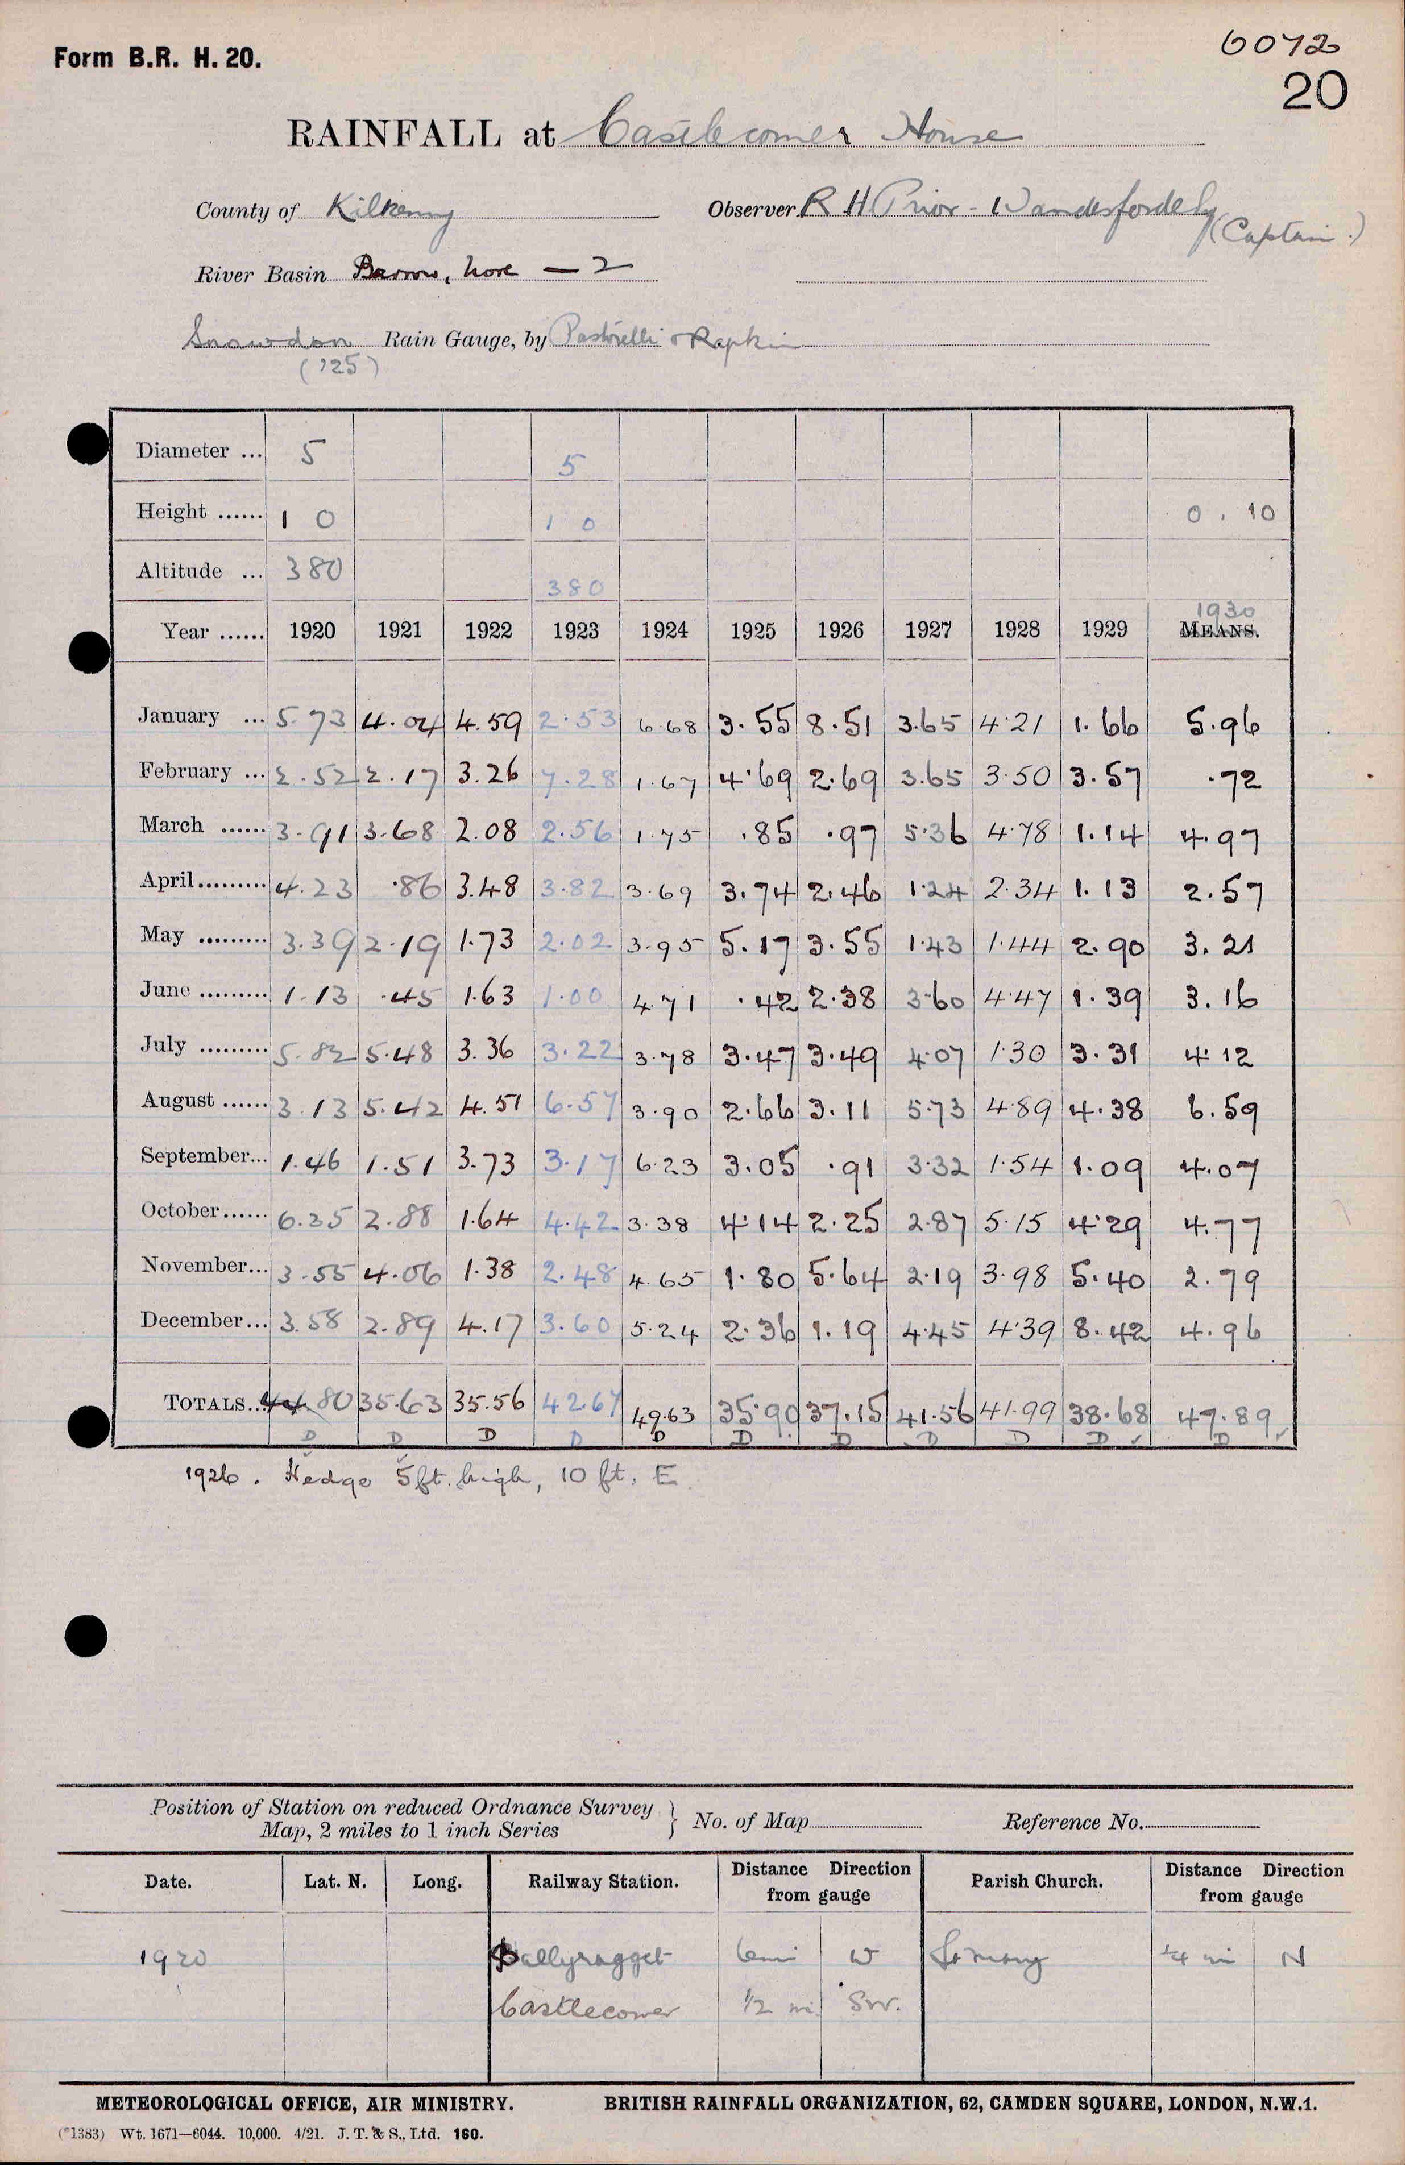 Form B.R. H. 20.
6072
20
RAINFALL at Castlecomer House
County of Kilkenny Observer R H Prior-Wandesforde Esq (Captain.)
River Basin Barrow, Nore — 2
Snowdon Rain Gauge, by Pastorelli & Rapkin
('25)
Diameter ... 5 5
Height ...... 1 0 1 0 0. 10
Altitude ... 380 380
1930
Year ...... 1920 1921 1922 1923 1924 1925 1926 1927 1928 1929 MEANS.
January ... 5.73 4.04 4.59 2.53 6.68 3.55 8.51 3.65 4.21 1.66 5.96
February ... 2.52 2.17 3.26 7.28 1.67 4.69 2.69 3.65 3.50 3.57 .72
March ...... 3.91 3.68 2.08 2.56 1.75 .85 .97 5.36 4.78 1.14 4.97
April......... 4.23 .86 3.48 3.82 3.69 3.74 2.46 1.24 2.34 1.13 2.57
May ......... 3.39 2.19 1.73 2.02 3.95 5.17 3.55 1.43 1.44 2.90 3.21
June ......... 1.13 .45 1.63 1.00 4.71 .42 2.38 3.60 4.47 1.39 3.16
July ......... 5.82 5.48 3.36 3.22 3.78 3.47 3.49 4.07 1.30 3.31 4.12
August ...... 3.13 5.42 4.51 6.57 3.90 2.66 3.11 5.73 4.89 4.38 6.59
September... 1.46 1.51 3.73 3.17 6.23 3.05 .91 3.32 1.54 1.09 4.07
October...... 6.35 2.88 1.64 4.42 3.38 4.14 2.25 2.87 5.15 4.29 4.77
November... 3.55 4.06 1.38 2.48 4.65 1.80 5.64 2.19 3.98 5.40 2.79
December... 3.58 2.89 4.17 3.60 5.24 2.36 1.19 4.45 4.39 8.42 4.96
TOTALS... 44.80 35.63 35.56 42.67 49.63 35.90 37.15 41.56 41.99 38.68 47.89
D D D D D D D D D D D
1926. Hedge 5 ft. high, 10 ft. E.
Position of Station on reduced Ordnance Survey Map, 2 miles to 1 inch Series } No. of Map Reference No.
Date. Lat. N. Long. Railway Station. Distance Direction from gauge Parish Church. Distance Direction from gauge
1920 Ballyragget 6 mi W St Mary ¼ mi N
Castlecomer ½ mi SW.
METEOROLOGICAL OFFICE, AIR MINISTRY. BRITISH RAINFALL ORGANIZATION, 62, CAMDEN SQUARE, LONDON, N.W.1.
(*1383) Wt. 1671—6044. 10,000. 4/21. J. T. & S., Ltd. 160.